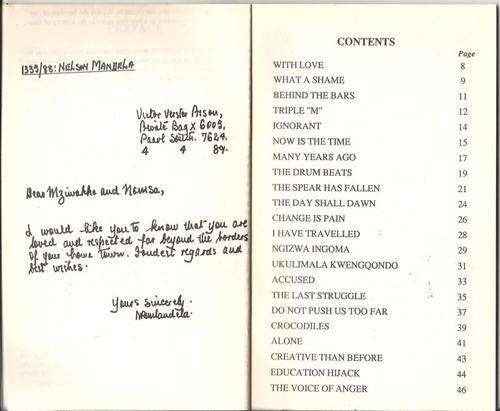 1335/88: NELSON MANDELA
Victor Verster Prison,
Private Bag X 6005,
Paarl South. 7624.
4 4 89.
Dear Mzwakhe and Nomsa,
I would like you to know that you are
loved and respected far beyond the borders
of your home town. Fondest regards and
best wishes.
Yours sincerely.
NMandela.
CONTENTS
Page
WITH LOVE 8
WHAT A SHAME 9
BEHIND THE BARS 11
TRIPLE "M" 12
IGNORANT 14
NOW IS THE TIME 15
MANY YEARS AGO 17
THE DRUM BEATS 19
THE SPEAR HAS FALLEN 21
THE DAY SHALL DAWN 24
CHANGE IS PAIN 26
I HAVE TRAVELLED 28
NGIZWA INGOMA 29
UKULIMALA KWENGQONDO 31
ACCUSED 33
THE LAST STRUGGLE 35
DO NOT PUSH US TOO FAR 37
CROCODILES 39
ALONE 41
CREATIVE THAN BEFORE 43
EDUCATION HIJACK 44
THE VOICE OF ANGER 46